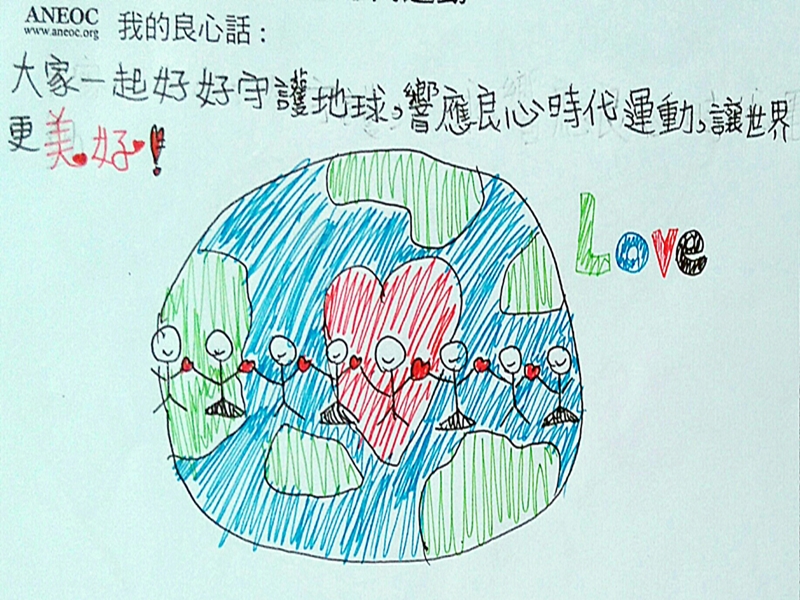 ANEOC
www.aneoc.org
我的良心話：
大家一起好好守護地球，響應良心時代運動，讓世界
更美好！
Love